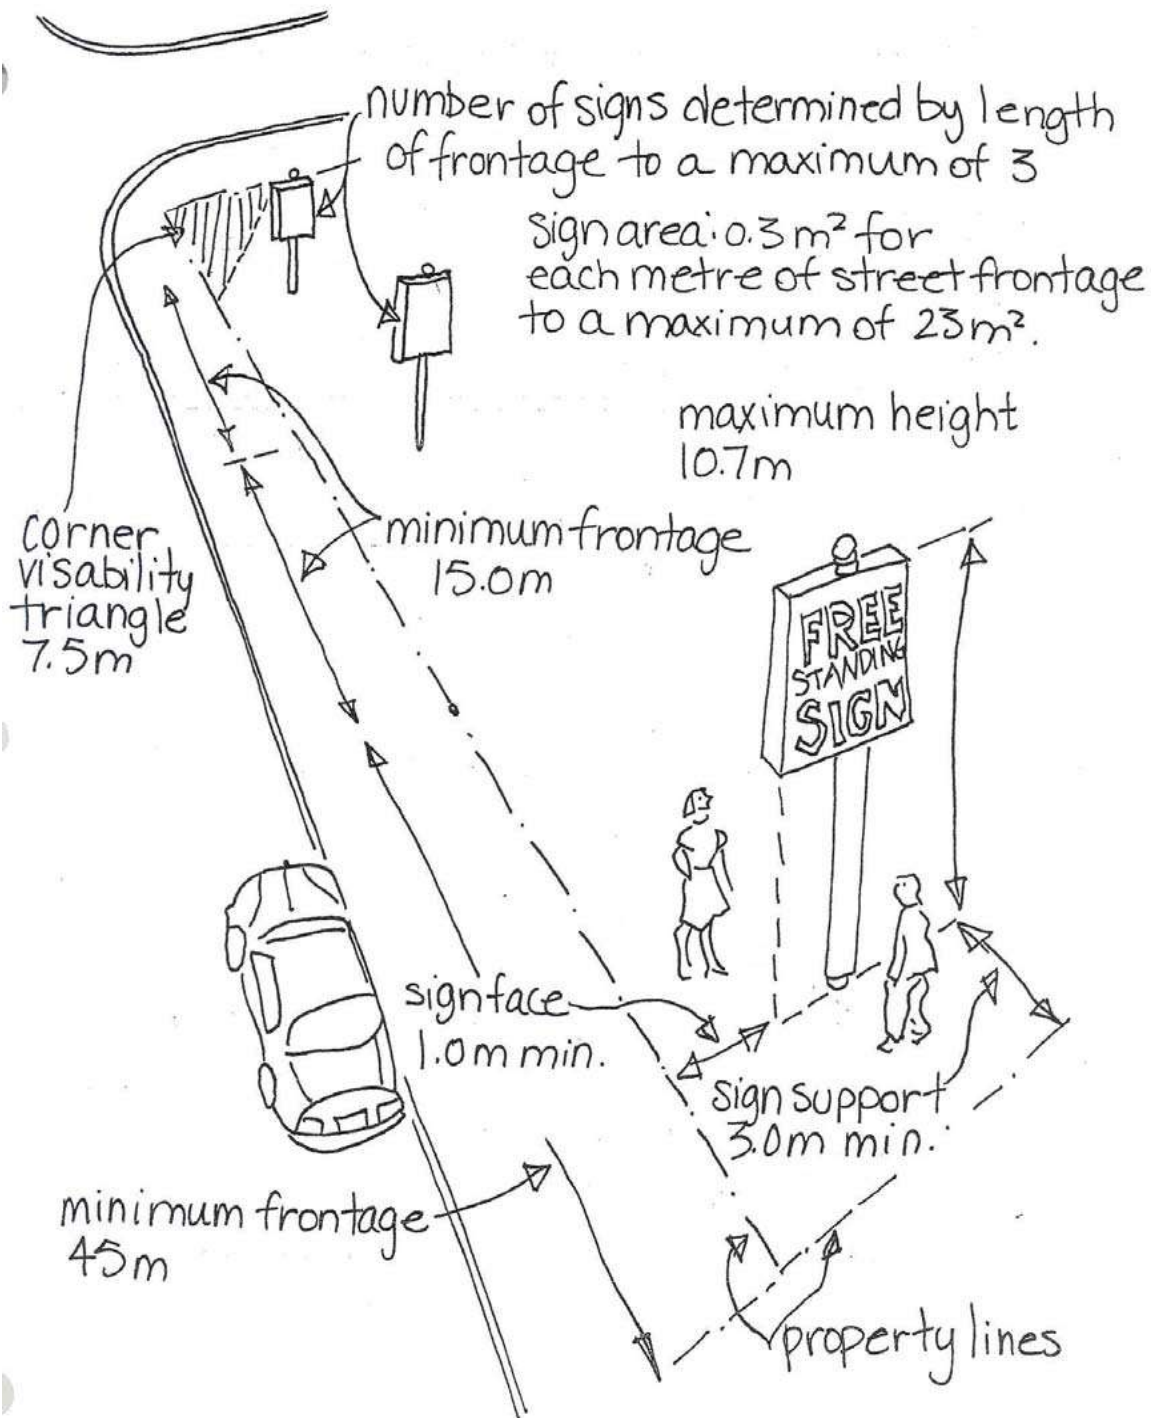 number of signs determined by length
of frontage to a maximum of 3
sign area: 0.3 m² for
each metre of street frontage
to a maximum of 23 m².
maximum height
10.7m
corner
visability
triangle
7.5m
minimum frontage
15.0m
FREE
STANDING
SIGN
sign face
1.0m min.
sign support
3.0m min.
minimum frontage
45m
property lines